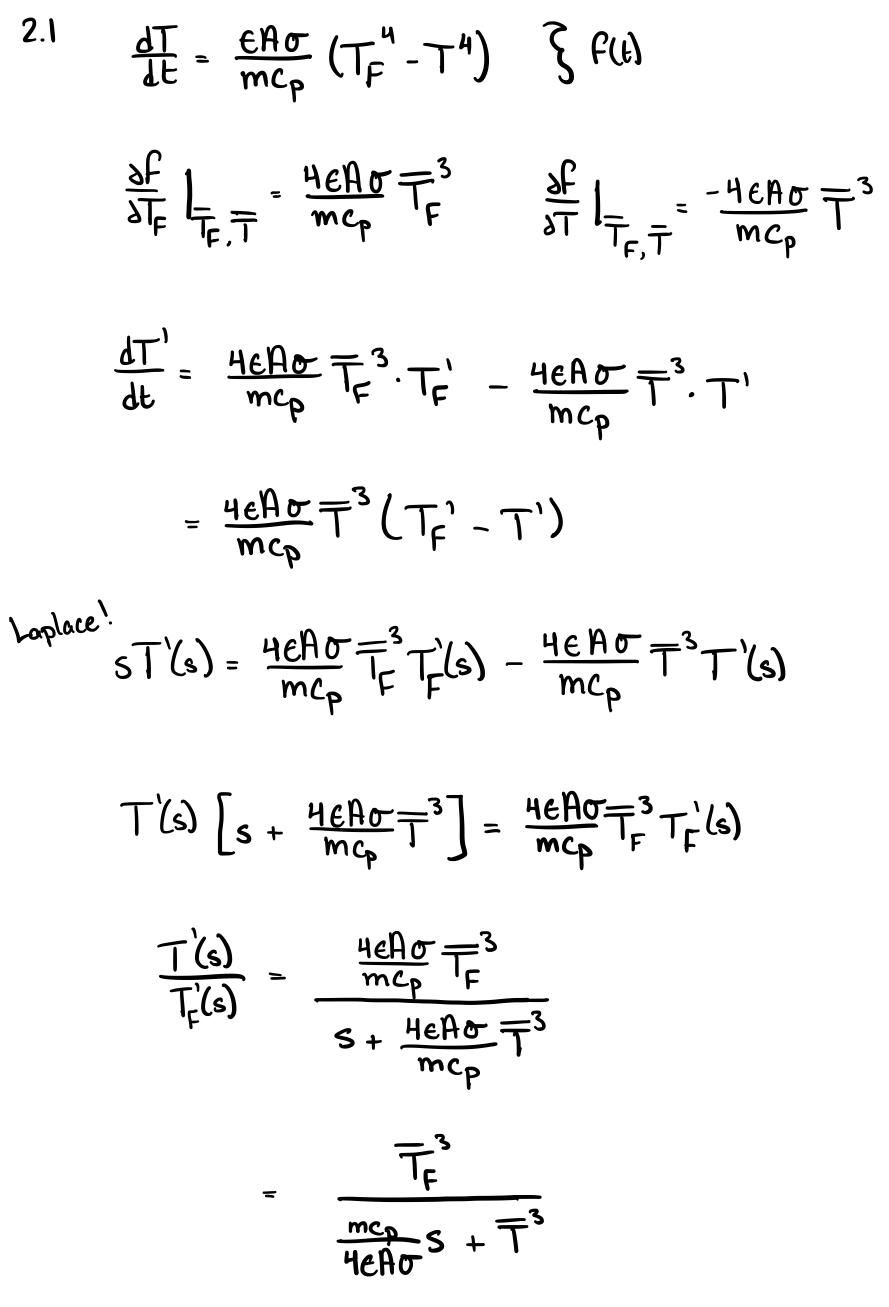 2.1 dT/dt = ϵAσ/mcₚ (T_F⁴ - T⁴) } f(t)
∂f/∂T_F |_T̄_F, T̄ = 4ϵAσ/mcₚ T̄_F³ ∂f/∂T |_T̄_F, T̄ = -4ϵAσ/mcₚ T̄³
dT'/dt = 4ϵAσ/mcₚ T̄_F³ · T_F' - 4ϵAσ/mcₚ T̄³ · T'
= 4ϵAσ/mcₚ T̄³ (T_F' - T')
Laplace! sT'(s) = 4ϵAσ/mcₚ T̄_F³ T_F'(s) - 4ϵAσ/mcₚ T̄³ T'(s)
T'(s) [s + 4ϵAσ/mcₚ T̄³] = 4ϵAσ/mcₚ T̄_F³ T_F'(s)
T'(s)/T_F'(s) = (4ϵAσ/mcₚ T̄_F³)/(s + 4ϵAσ/mcₚ T̄³)
= T̄_F³/(mcₚ/4ϵAσ s + T̄³)